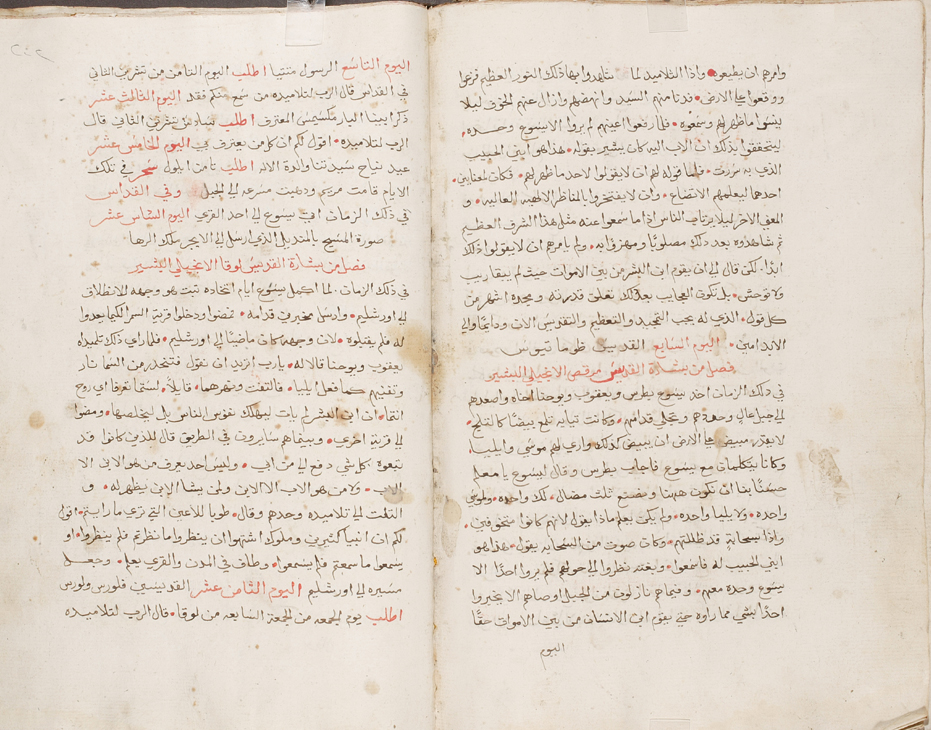 وامرهم ان يطيعوه واذا التلاميد لما شاهدوا بها ذلك النور العظيم فزعوا
ووقعوا على الارض فدنا منهم السيد وانهضهم وازال عنهم الخوف ليلا
ينسوا ما ظهر لهم وسمعوه فلما رفعوا اعينهم لم يروا الا يسوع وحده
ليتحققوا بذلك ان الاب اليه كان يشير بقوله هذا هو ابني الحبيب
الذي به سررت فاما قوله لهم ان لا يقولوا لاحد ما ظهر لهم فكان لمعنايين
احدهما ليعلمهم الاتضاع وان لا يفتخروا بالمناظر الالاهيه العاليه و
المعنى الاخر ليلا يرتاب الناس اذا ما سمعوا عنه مثل هذا الشرف العظيم
تم شاهدوه بعد ذلك مصلوبًا ومهزوا به ولم يامرهم ان لا يقولوا ذلك
ابدًا لكن قال الى ان يقوم ابن البشر من بين الاموات حيث لم يبقا ريب
ولا توحش بل تكون العجايب بعد ذلك تعلن قدرته ومجده اشهر من
كل قول الذي له يجب التمجيد والتعظيم والتقديس الان ودايمًا والى
الابد امين اليوم السابع القديس ضوماتيوس
فصل من بشارة القديس مرقص الانجيلي البشير
في ذلك الزمان اخد يسوع بطرس ويعقوب ويوحنا اخاه واصعدهم
الى جبل عالٍ وحدهم وتجلى قدامهم وكانت تيابه تلمع بيضًا كالتلج
لا يقدر مبيض على الارض ان يبيض كذلك واري لهم موسى وايليا
وكانا يتكلمان مع يسوع فاجاب بطرس وقال ليسوع يا معلم
حسنًا بنا ان نكون ههنا ونصنع ثلث مضال لك واحده ولموسى
واحده ولايليا واحده ولم يكن يعلم ماذا يقول لانهم كانوا متخوفين
واذا سحابة قد ظللتهم وكان صوت من السحابه يقول هذا هو
ابني الحبيب له فاسمعوا وبغته نظروا الى حولهم فلم يروا احدًا الا
يسوع وحده معهم وفيما هم نازلون من الجبل اوصاهم الا يخبروا
احدًا بشي مما راوه حتى يقوم ابن الانسان من بين الاموات حقًا
اليوم
اليوم التاسع الرسول متتيا اطلب اليوم التامن من تشرين الثاني
في القداس قال الرب لتلاميده من سمع منكم فقد اليوم الثالث عشر
ذكر ابينا البار مكسيمس المعترف اطلب من تشرين الثاني قال
الرب لتلاميده اقول لكم ان كل من يعترف بي اليوم الخامس عشر
عيد نياح سيدتنا والدة الاله اطلب تامن ايلول سحر في تلك
الايام قامت مريم ودهبت مسرعه الى الجبل وفي القداس
في ذلك الزمان اتى يسوع الى احد القرى اليوم السادس عشر
صورة المسيح بالمنديل الذي ارسل الى الابجر ملك الرها
فصل من بشارة القديس لوقا الانجيلي البشير
في ذلك الزمان لما اكمل يسوع ايام اتخاده تبت هو وجهه للانطلاق
الى اورشليم وارسل مخبرين قدامه فمضوا ودخلوا قرية السمرا لكيما يعدوا
له فلم يقبلوه لان وجهه كان ماضيًا الى اورشليم فلما راى ذلك تلميداه
يعقوب ويوحنا قالا له يارب اتريد ان نقول فتنحدر من السما نار
وتفنيهم كما فعل ايليا فالتفت ونهرهما قايلاً لستما تعرفا اي روح
انتما ان ابن البشر لم يات ليهلك نفوس الناس بل ليخلصها ومضوا
الى قرية اخرى وبينما هم سايرون في الطريق قال للذين كانوا قد
تبعوه كل شي دفع الي من ابي وليس احد يعرف من هو الابن الا
الاب ولا من هو الاب الا الابن ولمن يشا الابن يظهر له و
التفت الى تلاميده وحدهم وقال طوبا للاعين التي ترى ما رايتم اقول
لكم ان انبيا كثيرين وملوك اشتهوا ان ينظروا ما نظرتم فلم ينظروا او
يسمعوا ما سمعتم فلم يسمعوا وطاف في المدن والقرى يعلم وجعل
مسيره الى اورشليم اليوم الثامن عشر القديسين فلورس ولورس
اطلب يوم الجمعه من الجمعة السابعه من لوقا قال الرب لتلاميده